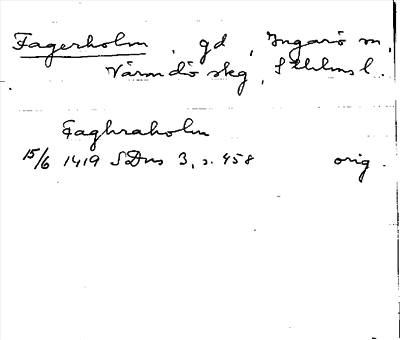 Fagerholm, gd, Ingarö sn,
Värmdö skg, Sthlms l.
Faghraholm
15/6 1419 SDns 3, s. 458 orig.